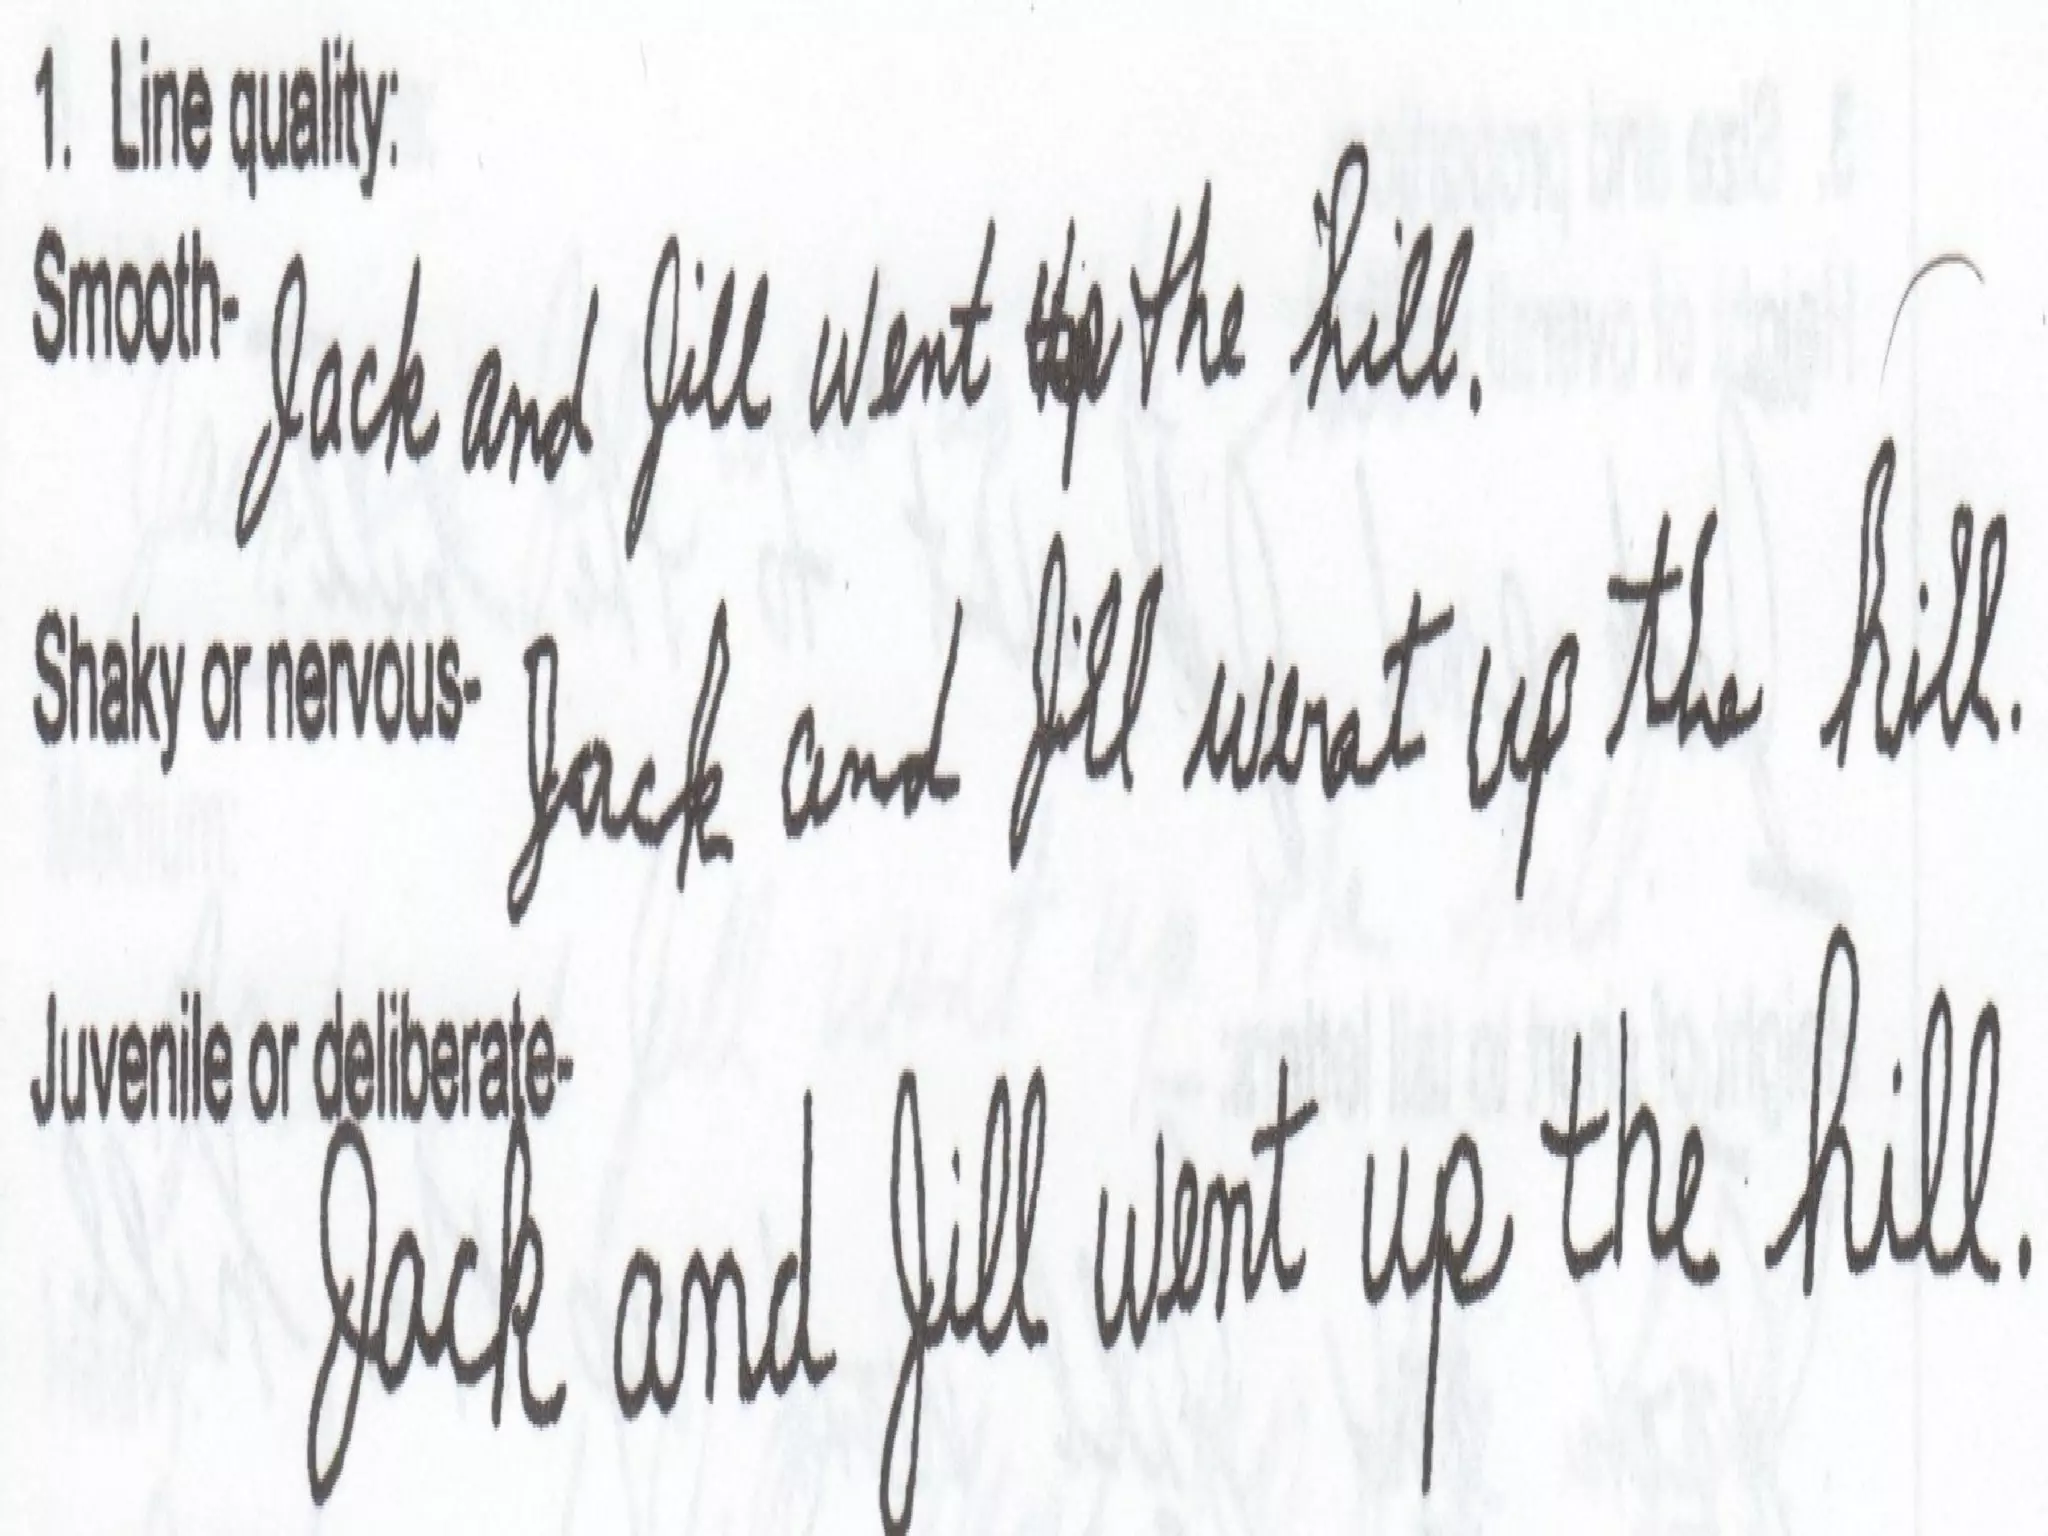 1. Line quality:
Smooth- Jack and Jill went up the hill.
Shaky or nervous- Jack and Jill went up the hill.
Juvenile or deliberate-
Jack and Jill went up the hill.